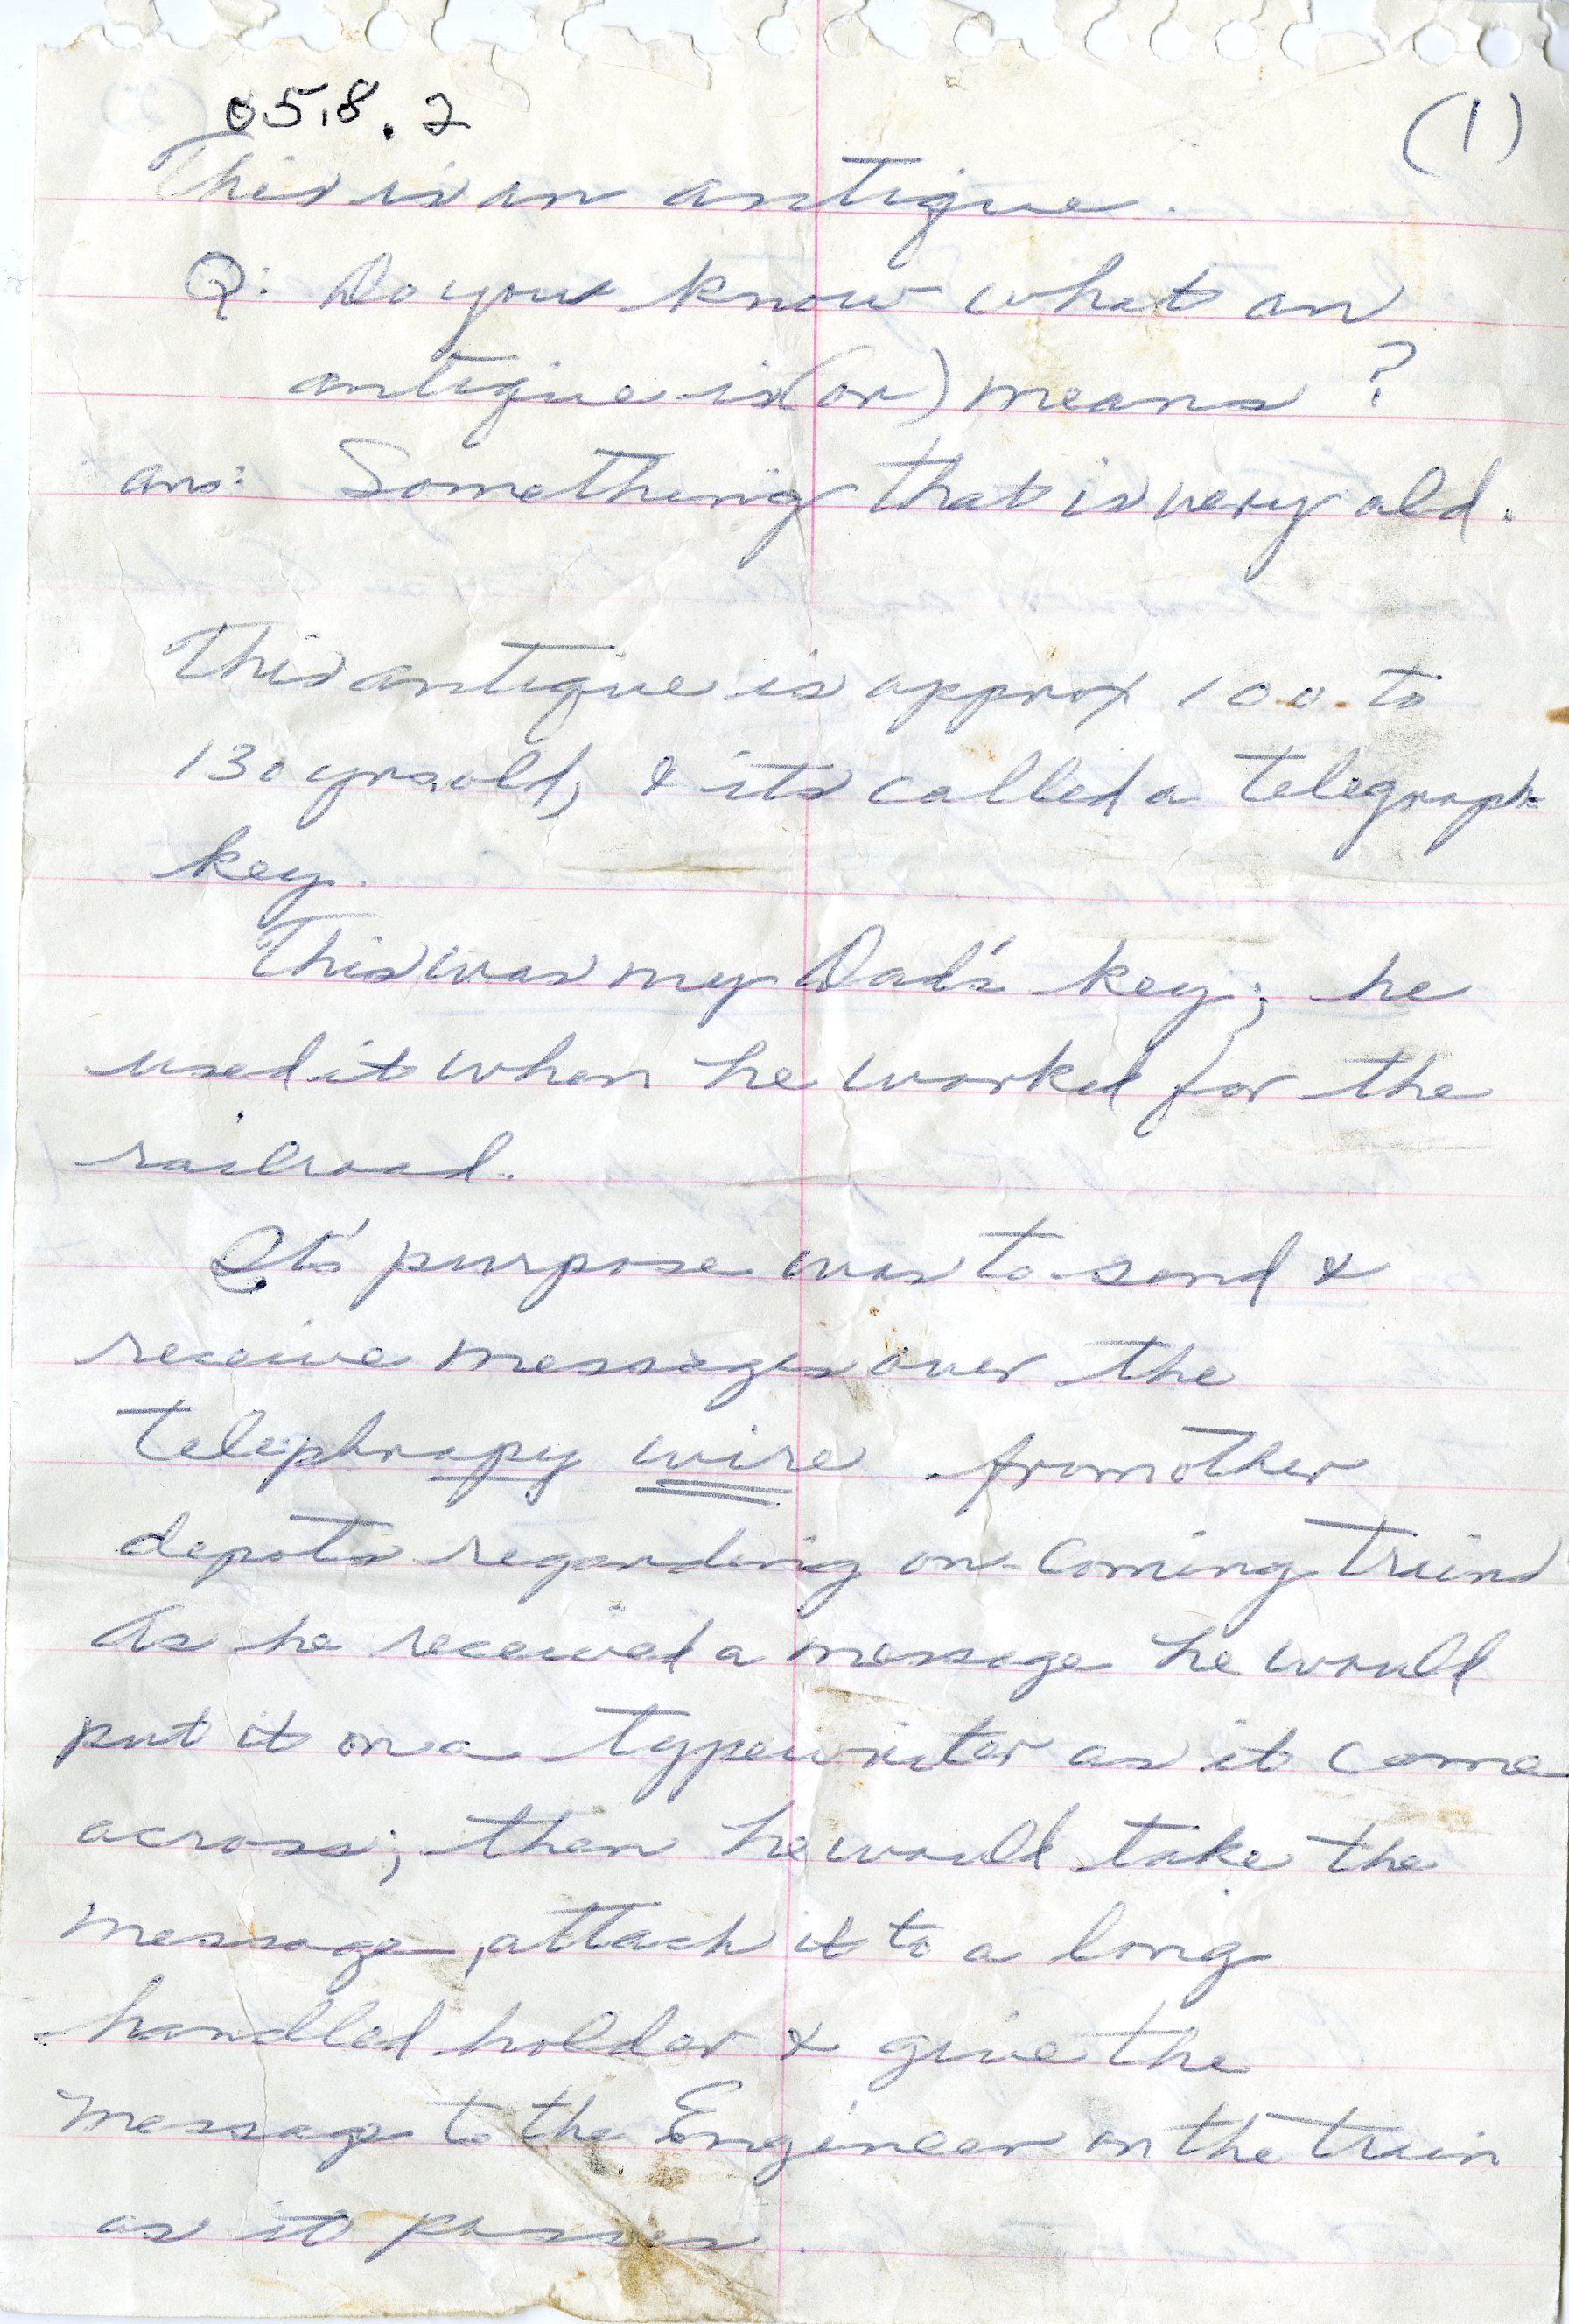 05.8.2
(1)
This is an antique.
Q: Do you know what an
antique is (or) means?
ans: Something that is very old.
This antique is approx 100 to
130 yrs old, & its called a telegraph
key.
This was my Dad's key; he
used it when he worked for the
railroad.
It's purpose was to send &
receive messages over the
telephrapy wire from other
depots regarding on-coming trains
As he received a message he would
put it on a typewriter as it come
across; then he would take the
message, attach it to a long
handled holder & give the
message to the Engineer on the train
as it passes.